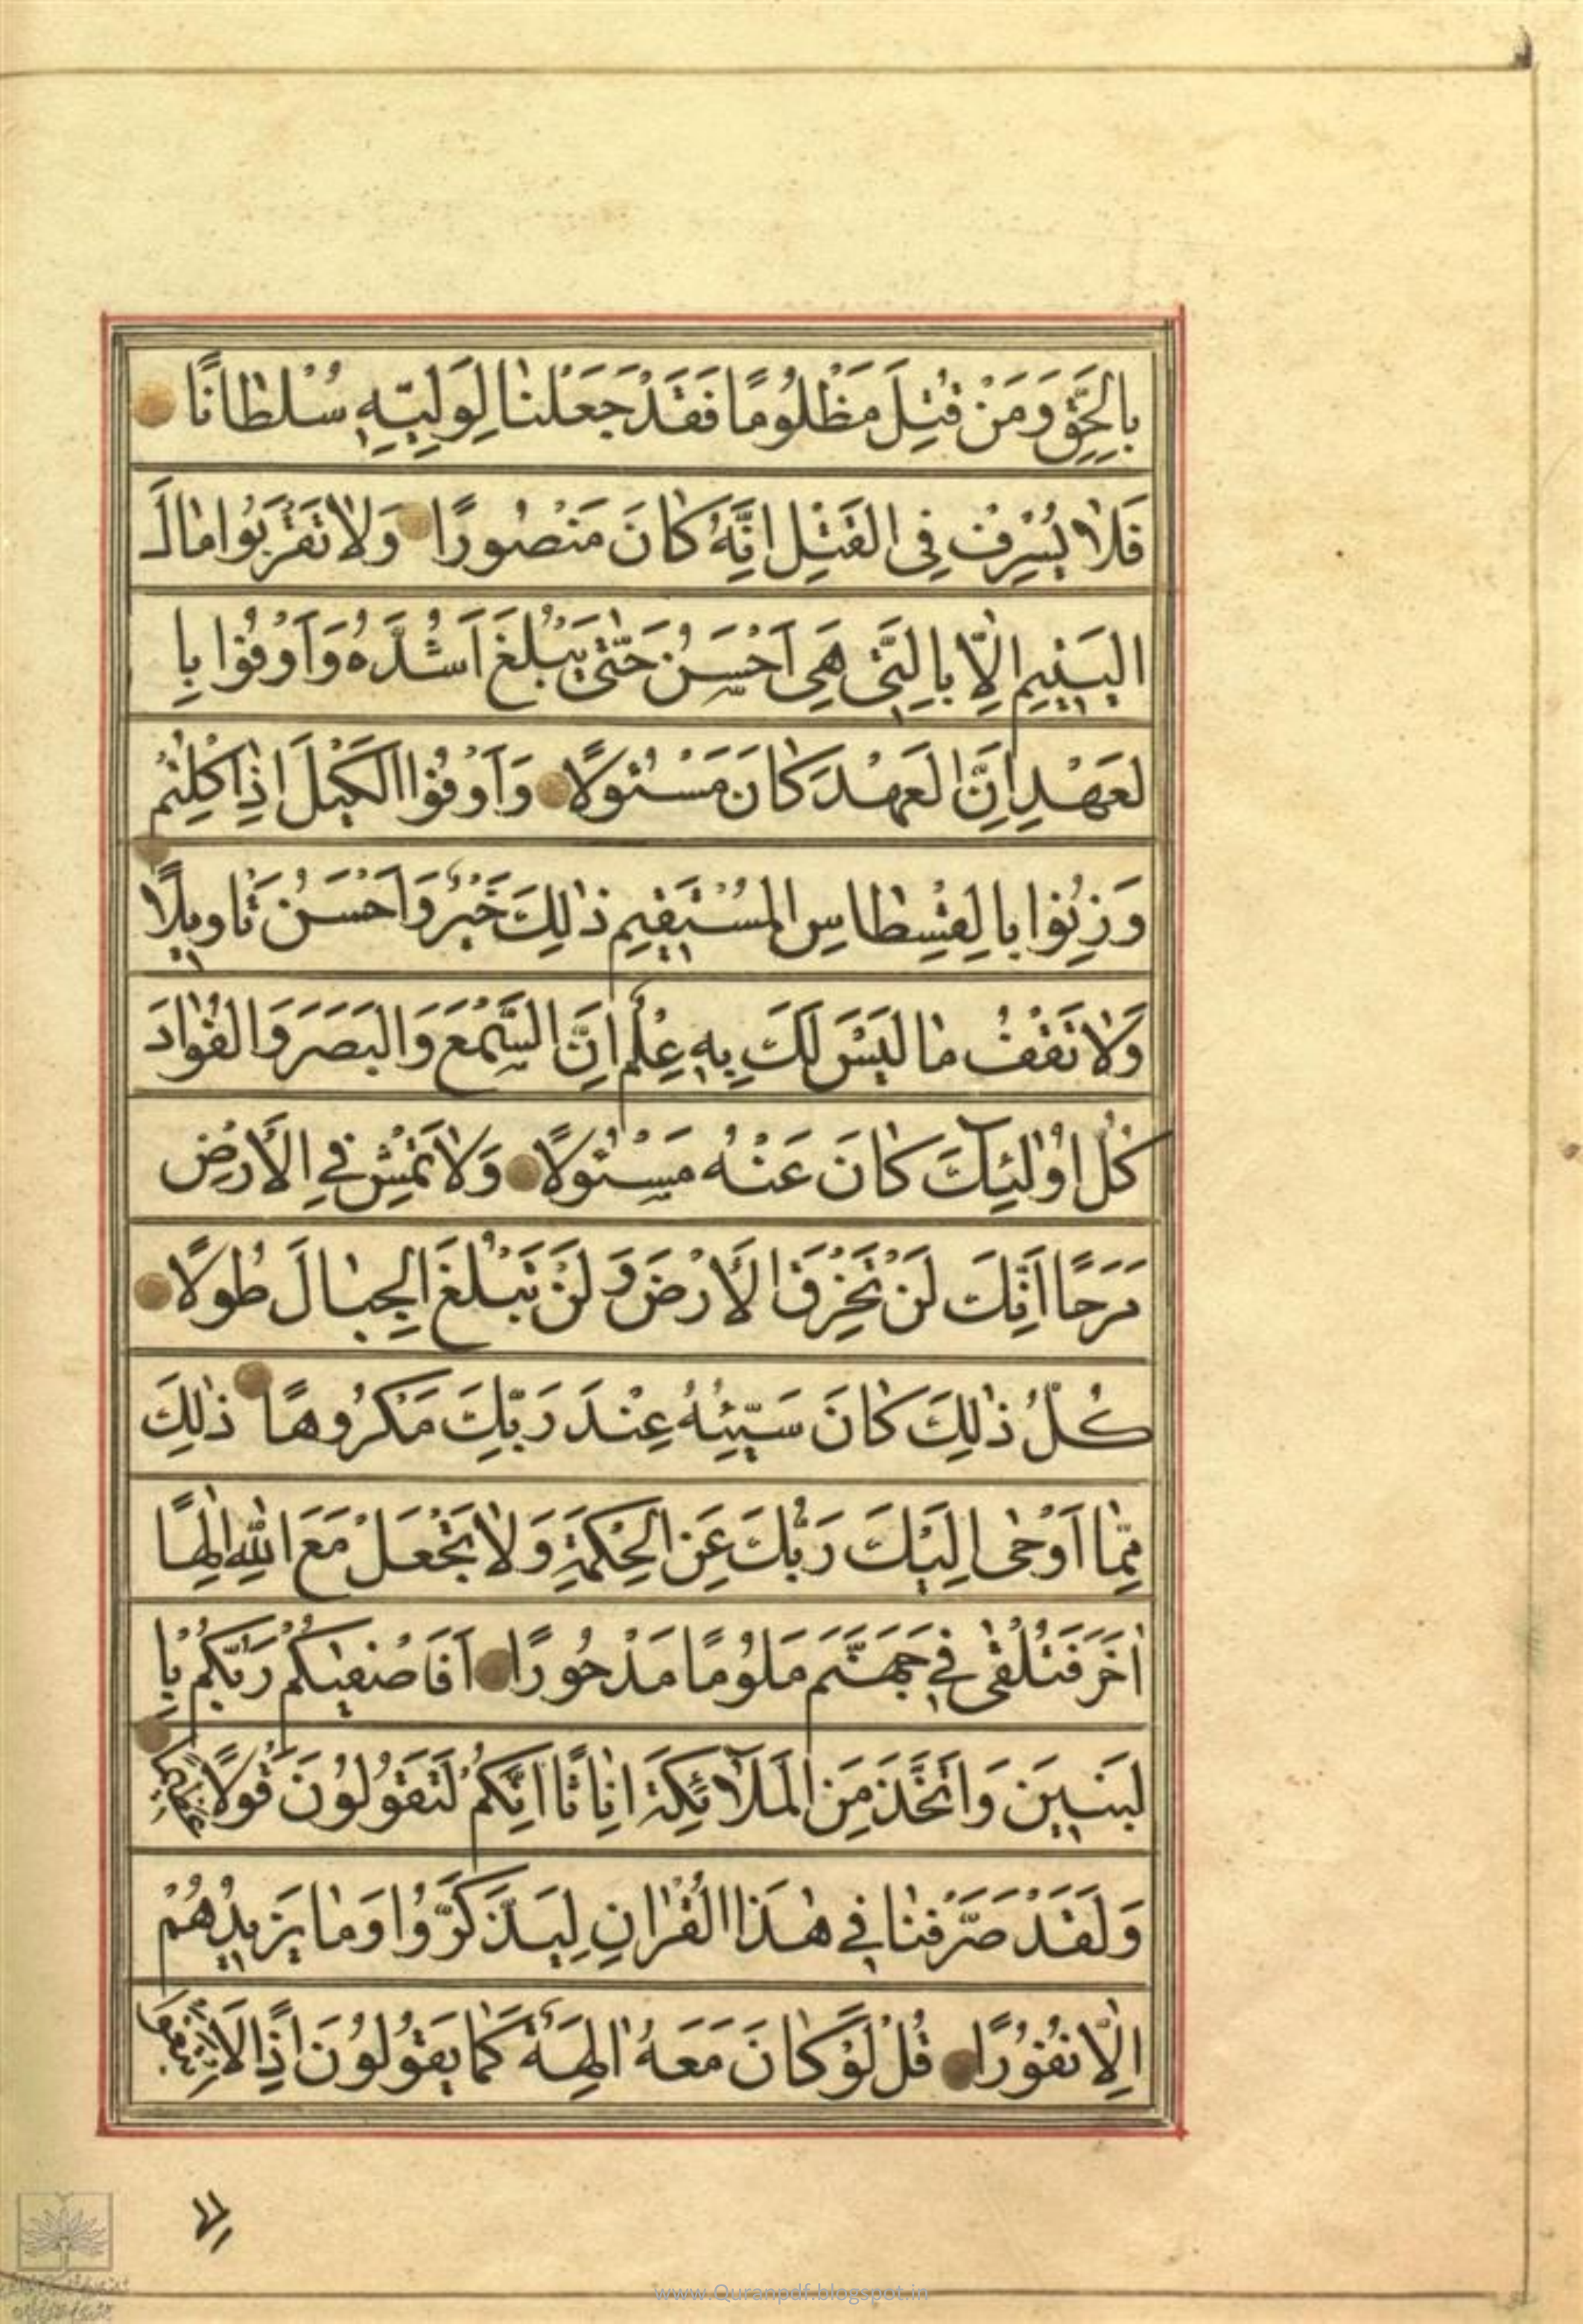 بِالْحَقِّ وَمَنْ قُتِلَ مَظْلُومًا فَقَدْ جَعَلْنٰا لِوَلِيِّهِ سُلْطٰانًا
فَلٰا يُسْرِفْ فِى الْقَتْلِ اِنَّهُ كٰانَ مَنْصُورًا وَلٰا تَقْرَبُوا مٰالَ
الْيَتِيمِ اِلّٰا بِالَّتِى هِىَ اَحْسَنُ حَتّٰى يَبْلُغَ اَشُدَّهُ وَاَوْفُوا بِا
لعَهْدِ اِنَّ الْعَهْدَ كٰانَ مَسْئُولًا وَاَوْفُوا الْكَيْلَ اِذٰا كِلْتُمْ
وَزِنُوا بِالْقِسْطٰاسِ الْمُسْتَقِيمِ ذٰلِكَ خَيْرٌ وَاَحْسَنُ تَاْوِيلًا
وَلٰا تَقْفُ مٰا لَيْسَ لَكَ بِهِ عِلْمٌ اِنَّ السَّمْعَ وَالْبَصَرَ وَالْفُؤٰادَ
كُلُّ اُولٰئِكَ كٰانَ عَنْهُ مَسْئُولًا وَلٰا تَمْشِ فِي الْاَرْضِ
مَرَحًا اِنَّكَ لَنْ تَخْرِقَ الْاَرْضَ وَلَنْ تَبْلُغَ الْجِبٰالَ طُولًا
كُلُّ ذٰلِكَ كٰانَ سَيِّئُهُ عِنْدَ رَبِّكَ مَكْرُوهًا ذٰلِكَ
مِمّٰا اَوْحٰى اِلَيْكَ رَبُّكَ مِنَ الْحِكْمَةِ وَلٰا تَجْعَلْ مَعَ اللّٰهِ اِلٰهًا
اٰخَرَ فَتُلْقٰى فِي جَهَنَّمَ مَلُومًا مَدْحُورًا اَفَاَصْفٰيكُمْ رَبُّكُمْ بِا
لبَنِينَ وَاتَّخَذَ مِنَ الْمَلٰٓائِكَةِ اِنٰاثًا اِنَّكُمْ لَتَقُولُونَ قَوْلًا عَظِيمًا
وَلَقَدْ صَرَّفْنٰا فِي هٰذَا الْقُرْاٰنِ لِيَذَّكَّرُوا وَمٰا يَزِيدُهُمْ
اِلّٰا نُفُورًا قُلْ لَوْ كٰانَ مَعَهُ اٰلِهَةٌ كَمٰا يَقُولُونَ اِذًا لَابْتَغَوْا
www.Quranpdf.blogspot.in